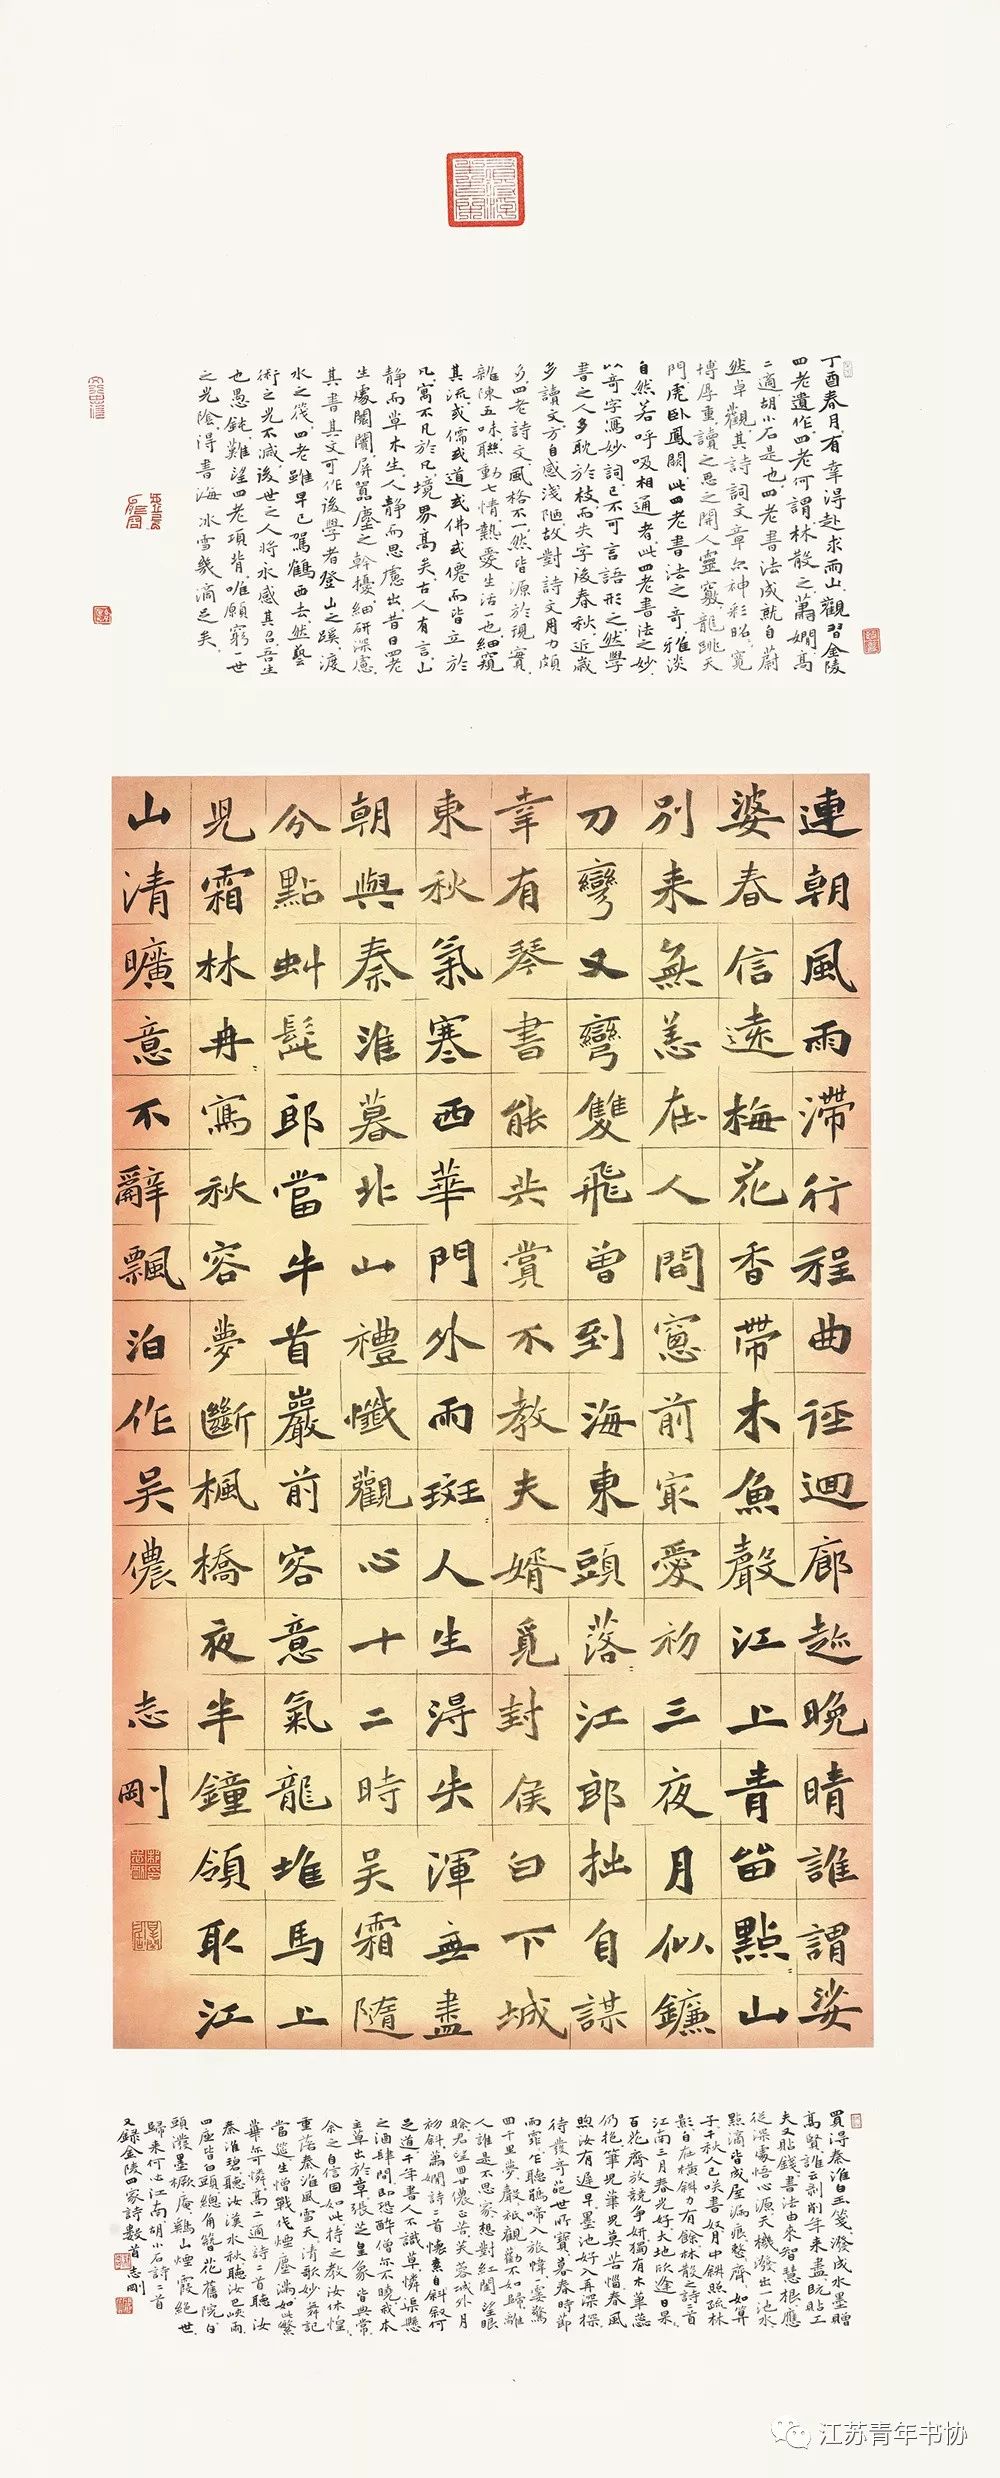 丁酉春月有幸得赴求雨山觀習金陵
四老遺作四老何謂林散之蕭嫻高
二適胡小石是也四老書法成就自蔚
然卓觀其詩詞文章尔神彩昭寬
博厚重讀之思之開人靈竅龍跳天
門虎卧鳳闕此四老書法之奇雅淡
自然若呼吸相通者此四老書法之妙
以奇字寫妙詞已不可言語形之然學
書之人多耽於枝而失字後春秋近歲
多讀文方自感淺陋故對詩文用力頗
多四老詩文風格不一然皆源於現實
雜陳五味聯動七情熱愛生活也細窺
其流或儒或道或佛或僊而皆立於
凡寓不凡於凡境界高矣古人有言山
静而草木生人静而思慮出昔日四老
生處闤闠屏囂塵之幹擾細研深慮
其書其文可作後學者登山之蹊渡
水之筏四老雖早已駕鶴西去然藝
術之光不滅後世之人將永感其召吾生
也愚鈍難望四老項背唯願窮一世
之光陰得書海冰雪幾滴足矣
連朝風雨滯行程曲徑迴廊趂晚晴誰謂娑
婆春信遠梅花香帶木魚聲江上青苗點山
別来無恙在人間窻前㝡愛初三夜月似鐮
刀彎又彎雙飛曾到海東頭落江郎拙自謀
幸有琴書能共賞不教夫婿覓封侯白下城
東秋氣寒西華門外雨斑斑人生得失渾無盡
朝與秦淮暮北山禮懺觀心十二時吴霜隨
分點虯髭郎當牛首巖前客意氣龍堆馬上
兒霜林冉冉寫秋容夢斷楓橋夜半鐘領取江
山清曠意不辭飄泊作吴儂 志剛
買得秦淮白玉箋潑成水墨贈
高賢誰云剥削年来盡既貼工
夫又貼錢書法由来智慧根應
從深處悟心源天機潑出一池水
點滴皆成屋漏痕憨齊如算
子千秋人已咲書奴月中斜照疏林
影自在横斜力有餘林散之詩二首
江南三月春光好大地欣逢日杲
百花齊放競争妍獨有木筆蕊
仍抱筆兒筆兒莫苦惱春風
煦汝有遲早墨池好入再深探
待發奇葩世所寶暮春時節
雨霏乍聽鵑啼入旅幃一霎驚
四千里夢聲祇觀勸不如歸離
人誰是不思家想對紅閨望眼
賒君望田廿儂正苦芙蓉城外月
初斜蕭嫻詩二首懷素自斜叙何
足道千年書人不識草憐渠懸
之酒肆間即恐醉僧尔不曉我本
主草出於章張芝皇象皆典常
余之自信固如此持之教汝休惶
重蕩秦淮風雪天清歌妙舞記
當筵生憎戰伐煙塵滿如此繁
華亦可憐高二適詩二首聽汝
秦淮碧聽汝漢水秋聽汝巴峽雨
四座皆白頭總角簪花舊院白
頭潑墨橛庵雞山煙霞絕世
歸来何必江南胡小石詩二首
又錄金陵四家詩數首志剛
江苏青年书协